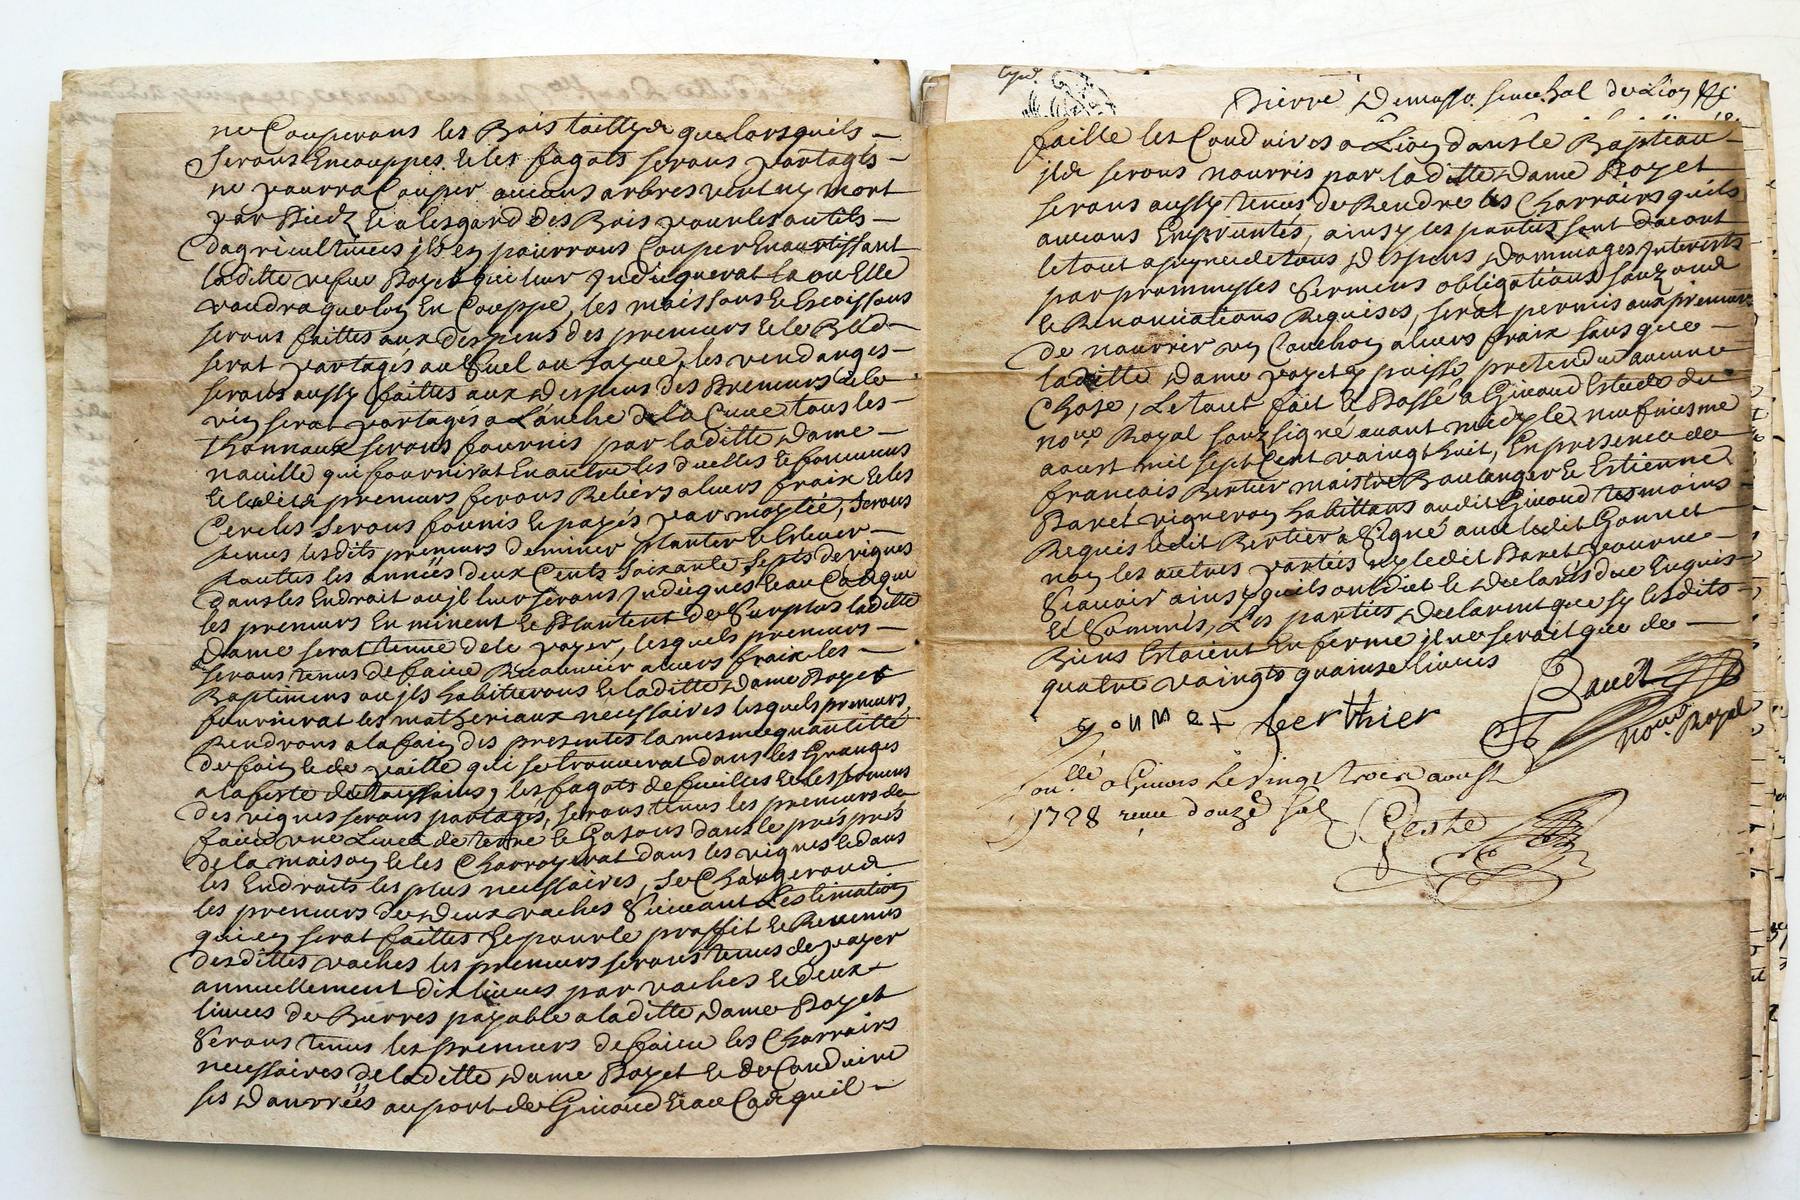 ne Couperons les Bois taillys que lors quils
serons Encouppes Et les fagots serons partagés
ne pourra Couper aucuns arbres vert ny mort
par Piedz Et a lesgard des Bois pour les outils
dagricultures jls En pourrons Couper En avertissant
laditte vefue Boyet qui leur Judiquerat la ou Elle
voudra que lon En Couppe, les moissons Et Escoissons
serons faittes aux despens des preneurs Et le Bled
serat partagés au Suel ou Layre, les vendanges
serons aussy faittes aux despens des Preneurs Et le
vin serat partagés a Lanche de la Cuue tous les
thonnaux serons fournis par laditte Dame
nauille qui fournirat En outre les duelles Et fonceures
Et lesdits preneurs ferons Reliers a leurs fraix Et les
Cercles serons fournis Et payés par moytié, Serons
tenus lesdits preneurs de miner planter Et Esleuer
toutes les années deux Cents soixante Septs de vignes
dans les Endroit ou jl leur serons Judiqués Et au Cas que
les preneurs En minent Et Plantent de Surplus laditte
Dame serat tenue de le payer, lesquels preneurs
serons tenus de faire Recouurir a leurs fraix les
Baptimens ou jls habitterons Et laditte Dame Boyet
fournirat les matheriaux necessaires lesquels preneurs
Rendrons a la fin des presentes la mesme quantitté
de foin Et de paille qui se trouuerat dans les Granges
a la feste de Toussains, les fagots de fueilles Et les
des vignes serons partagés, serons tenus les preneurs de
faire vne Liuée de terre Et Gasons dans le pres prés
de la maison Et les Charroyerat dans les vignes Et dans
les Endroits les plus necessaires, se Chargerons
les preneurs des deux vaches Suiuant Lestimation
qui en serat faittes Et pour le proffit Et Reuenus
desdittes vaches les preneurs serons tenus de payer
annuellement dix liures par vaches Et deux
liures de Burres payable a laditte Dame Boyet
Serons tenus les preneurs de faire les Charrois
necessaires de laditte Dame Boyet Et de Conduire
ses Danrrées au port de Giuord Et au Cas quil
Pierre Demasso senechal de Lion
faille les Conduires a Lion dans le Bapteau
jls serons nourris par laditte Dame Boyet
serons aussy tenus de Rendre les Charrois quils
aurons Empruntés, ainsy les parties sont dacort
le tout a peyne de tous Despens Dommages Interests
par prommesses Sermens obligations soubz
Et Renonciations Requises, serat permis aux preneurs
de nourrir vn Couchon a leurs fraix sans que
laditte Dame Boyet puisse pretendre aucune
Chose, Le tout fait Et Passé a Giuord Estude du
noire Royal soubzsigné auant midy le neufuiesme
aoust mil sept Cent vaingt huit, En presence de
francois Bertier maistre Boulanger Et Estienne
Baret vigneron habittans audit Giuord tesmoins
Requis ledit Bertier a Signé auec ledit Gonnet
non les autres parties ny ledit Baret pour ne
Scauoir ainsy quils ont diet Et Declarés due Enquis
Et Sommés, Les parties Declarent que sy lesdits
Biens Estoient En ferme jl ne serait que de
quatre vaingts quainse liures
gonnet berthier
noire Royal
Coné a Giuors Le vingt trois aoust
1728 receu douze sol